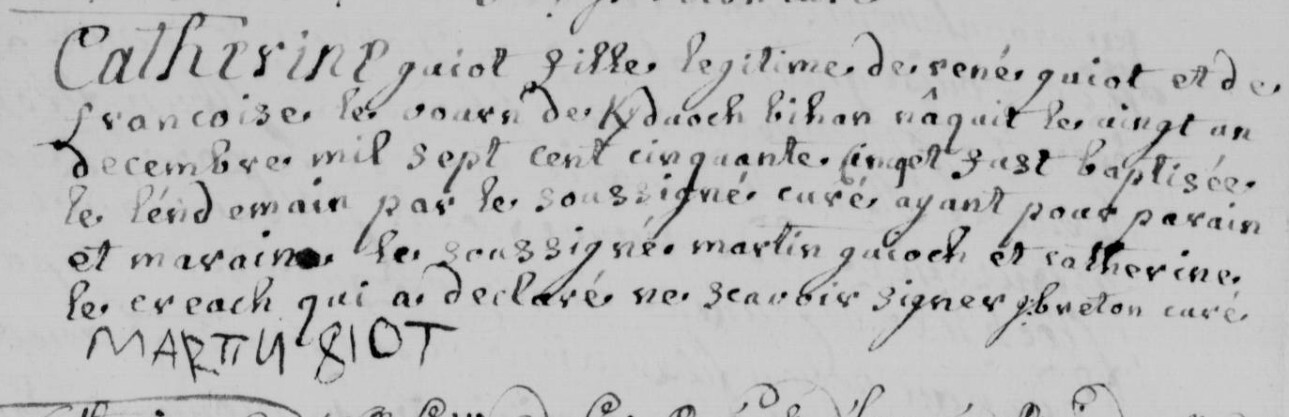 Catherine guiot fille legitime de rené guiot et de
francoise le vourn de Kdvoch bihan nâquit le vingt un
decembre mil sept cent cinquante cinq et fust baptisée
le léndemain par le soussigné curé ayant pour parain
et maraine le soussigné martin guioch et catherine
le creach qui a declaré ne scavoir signer breton curé
MARTIN GIOT